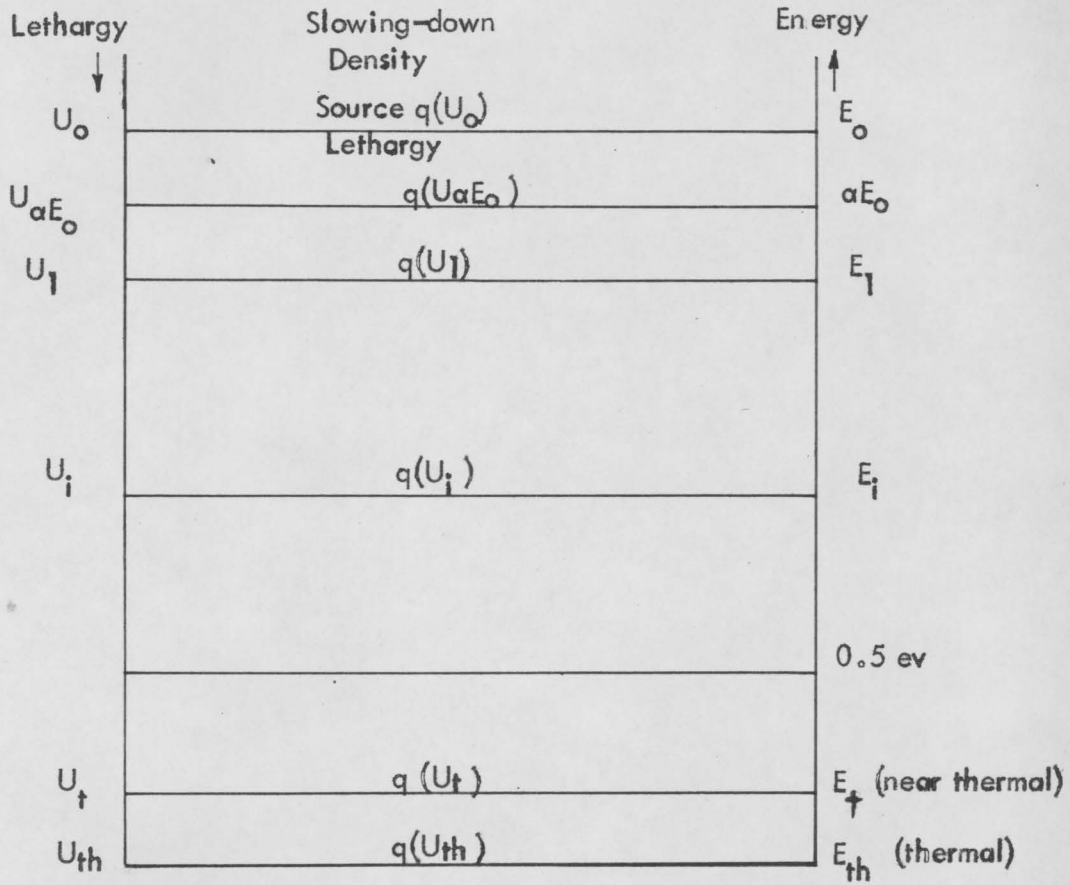 Lethargy Slowing-down Energy
↓ Density ↑
U₀ Source q(U₀) E₀
Lethargy
U_αE₀ q(UαE₀) αE₀
U₁ q(U1) E₁
U_i q(U_i) E_i
0.5 ev
U_t q(U_t) E_t (near thermal)
U_th q(Uth) E_th (thermal)